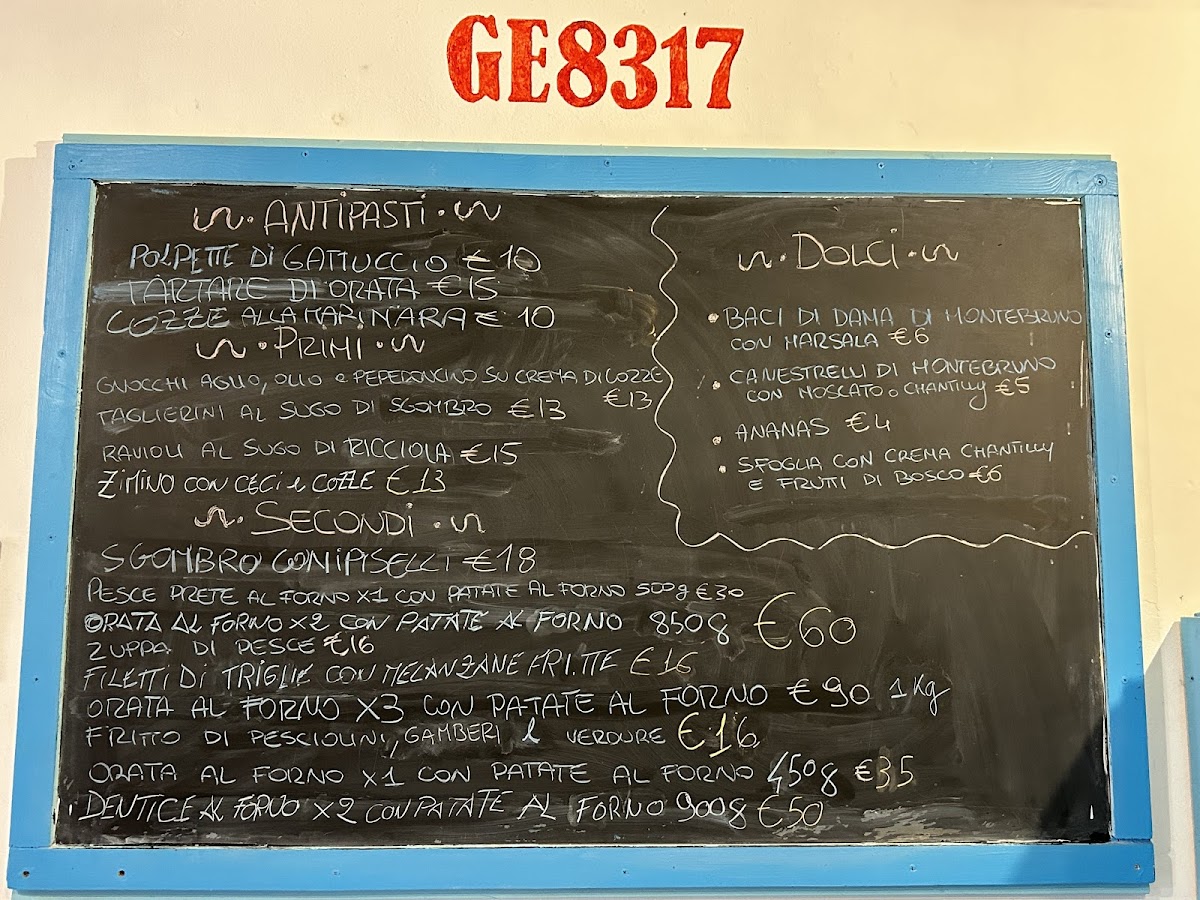 GE8317
ANTIPASTI
POLPETTE DI GATTUCCIO €10
TARTARE DI ORATA €15
COZZE ALLA MARINARA € 10
PRIMI
GNOCCHI AGLIO, OLIO e PEPERONCINO SU CREMA DI COZZE
€13
TAGLIERINI AL SUGO DI SGOMBRO €13
RAVIOLI AL SUGO DI RICCIOLA €15
ZIMINO CON CECI e COZZE €13
SECONDI
SGOMBRO CON I PISELLI €18
PESCE PRETE AL FORNO X1 CON PATATE AL FORNO 500g €30
ORATA AL FORNO X2 CON PATATE AL FORNO 850g €60
ZUPPA DI PESCE €16
FILETTI DI TRIGLIE CON MELANZANE FRITTE €16
ORATA AL FORNO X3 CON PATATE AL FORNO €90 1Kg
FRITTO DI PESCIOLINI, GAMBERI e VERDURE €16
ORATA AL FORNO X1 CON PATATE AL FORNO 450g €35
DENTICE AL FORNO X2 CON PATATE AL FORNO 900g €50
DOLCI
• BACI DI DAMA DI MONTEBRUNO
CON MARSALA €6
• CANESTRELLI DI MONTEBRUNO
CON MOSCATO o CHANTILLY €5
• ANANAS €4
• SFOGLIA CON CREMA CHANTILLY
E FRUTTI DI BOSCO €6